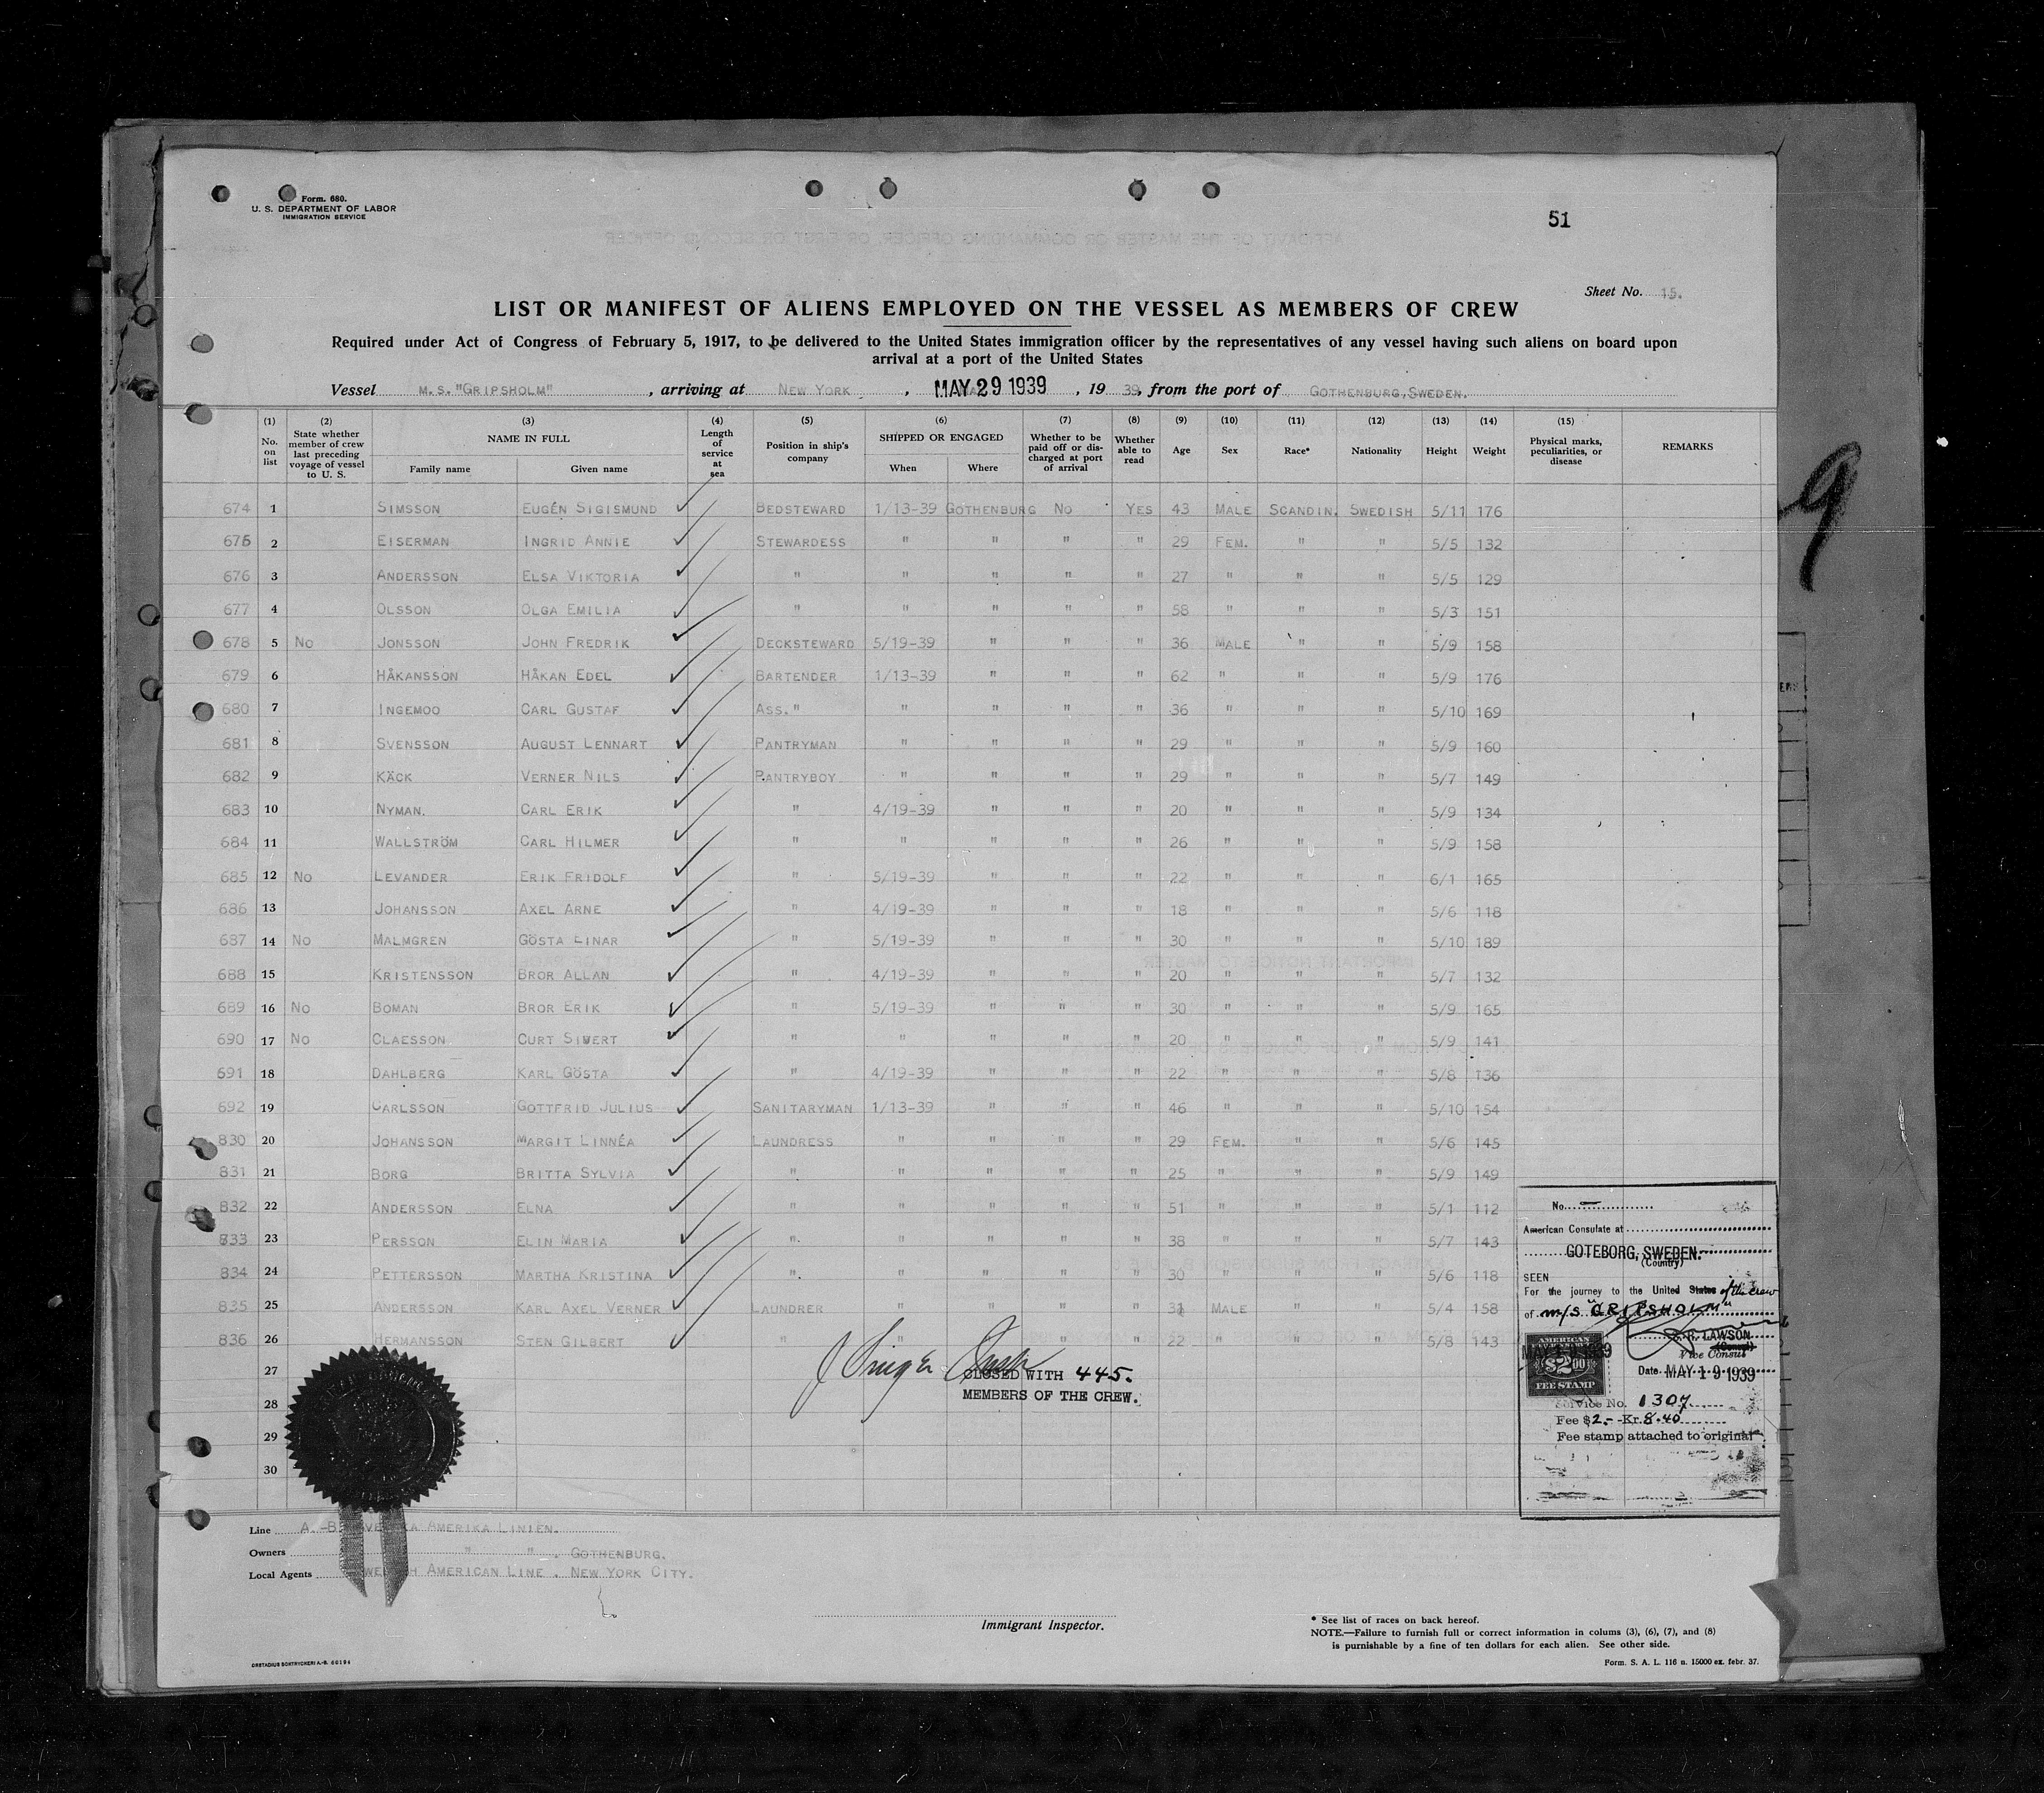 Form. 680.
U. S. DEPARTMENT OF LABOR
IMMIGRATION SERVICE
51
Sheet No. 15.
LIST OR MANIFEST OF ALIENS EMPLOYED ON THE VESSEL AS MEMBERS OF CREW
Required under Act of Congress of February 5, 1917, to be delivered to the United States immigration officer by the representatives of any vessel having such aliens on board upon
arrival at a port of the United States
Vessel M.S."GRIPSHOLM", arriving at NEW YORK, MAY 29 1939, 19 39, from the port of GOTHENBURG, SWEDEN.
(1) No. on list (2) State whether member of crew last preceding voyage of vessel to U. S. (3) NAME IN FULL Family name Given name (4) Length of service at sea (5) Position in ship's company (6) SHIPPED OR ENGAGED When Where (7) Whether to be paid off or discharged at port of arrival (8) Whether able to read (9) Age (10) Sex (11) Race* (12) Nationality (13) Height (14) Weight (15) Physical marks, peculiarities, or disease REMARKS
674 1 SIMSSON EUGÉN SIGISMUND BEDSTEWARD 1/13-39 GOTHENBURG NO YES 43 MALE SCANDIN. SWEDISH 5/11 176
675 2 EISERMAN INGRID ANNIE STEWARDESS " " " " 29 FEM. " " 5/5 132
676 3 ANDERSSON ELSA VIKTORIA " " " " " 27 " " " 5/5 129
677 4 OLSSON OLGA EMILIA " " " " " 58 " " " 5/3 151
678 5 NO JONSSON JOHN FREDRIK DECKSTEWARD 5/19-39 " " " 36 MALE " " 5/9 158
679 6 HÅKANSSON HÅKAN EDEL BARTENDER 1/13-39 " " " 62 " " " 5/9 176
680 7 INGEMOO CARL GUSTAF ASS." " " " " 36 " " " 5/10 169
681 8 SVENSSON AUGUST LENNART PANTRYMAN " " " " 29 " " " 5/9 160
682 9 KÄCK VERNER NILS PANTRYBOY " " " " 29 " " " 5/7 149
683 10 NYMAN. CARL ERIK " 4/19-39 " " " 20 " " " 5/9 134
684 11 WALLSTRÖM CARL HILMER " " " " " 26 " " " 5/9 158
685 12 NO LEVANDER ERIK FRIDOLF " 5/19-39 " " " 22 " " " 6/1 165
686 13 JOHANSSON AXEL ARNE " 4/19-39 " " " 18 " " " 5/6 118
687 14 NO MALMGREN GÖSTA EINAR " 5/19-39 " " " 30 " " " 5/10 189
688 15 KRISTENSSON BROR ALLAN " 4/19-39 " " " 20 " " " 5/7 132
689 16 NO BOMAN BROR ERIK " 5/19-39 " " " 30 " " " 5/9 165
690 17 NO CLAESSON CURT SIVERT " " " " " 20 " " " 5/9 141
691 18 DAHLBERG KARL GÖSTA " 4/19-39 " " " 22 " " " 5/8 136
692 19 CARLSSON GOTTFRID JULIUS SANITARYMAN 1/13-39 " " " 46 " " " 5/10 154
830 20 JOHANSSON MARGIT LINNÉA LAUNDRESS " " " " 29 FEM. " " 5/6 145
831 21 BORG BRITTA SYLVIA " " " " " 25 " " " 5/9 149
832 22 ANDERSSON ELNA " " " " " 51 " " " 5/1 112
833 23 PERSSON ELIN MARIA " " " " " 38 " " " 5/7 143
834 24 PETTERSSON MARTHA KRISTINA " " " " " 30 " " " 5/6 118
835 25 ANDERSSON KARL AXEL VERNER LAUNDRER " " " " 31 MALE " " 5/4 158
836 26 HERMANSSON STEN GILBERT " " " " 22 " " " 5/8 143
27
28
29
30
CLOSED WITH 445.
MEMBERS OF THE CREW.
No.
American Consulate at
GOTEBORG, SWEDEN.
(Country)
SEEN
For the journey to the United States of the crew
of M/S "GRIPSHOLM"
R. LAWSON
Vice Consul
(Consul)
AMERICAN
$2.00
FEE STAMP
MAY 19 1939
Date MAY 19 1939
Service No. 1307
Fee $2.- -Kr. 8.40
Fee stamp attached to original
Line A.-B. SVENSKA AMERIKA LINIEN.
Owners " " . GOTHENBURG.
Local Agents SWEDISH AMERICAN LINE. NEW YORK CITY.
Immigrant Inspector.
* See list of races on back hereof.
NOTE.—Failure to furnish full or correct information in colums (3), (6), (7), and (8)
is purnishable by a fine of ten dollars for each alien. See other side.
ORSTADIUS BOKTRYCKERI A.-B. 60194
Form. S. A. L. 116 n. 15000 ex. febr. 37.
9